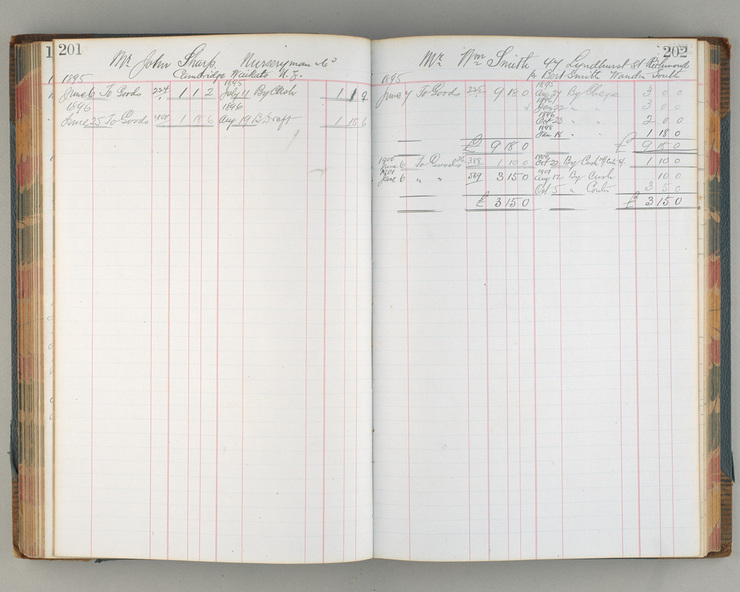 201
Mr John Sharp. Nurseryman &c
Cambridge Waikato N.Z.
1895 1895
June 6 To Goods 224 1 1 2 July 11 By Cash 1 1 2
1896 1896
June 25 To Goods 1 18 6 Aug 19 B Draft 1 18 6
202
Mr Wm Smith 47 Lyndhurst St Richmond
Bert Smith Wandin South
1895 1895
June 7 To Goods 225 9 18 0 Aug 27 By Cheque 3 0 0
1896
" " 3 0 0
1896
Oct 23 " " 2 0 0
1898
Jan 18 " " 1 18 0
£ 9 18 0 £ 9 18 0
1900 1900
June 6 To Goods 388 1 10 0 Oct 22 By Cash 1 10 0
1901 1901
June 6 " " 589 3 15 0 Aug 12 By Cash 10 0
Oct 5 " 3 5 0
£ 3 15 0 £ 3 15 0